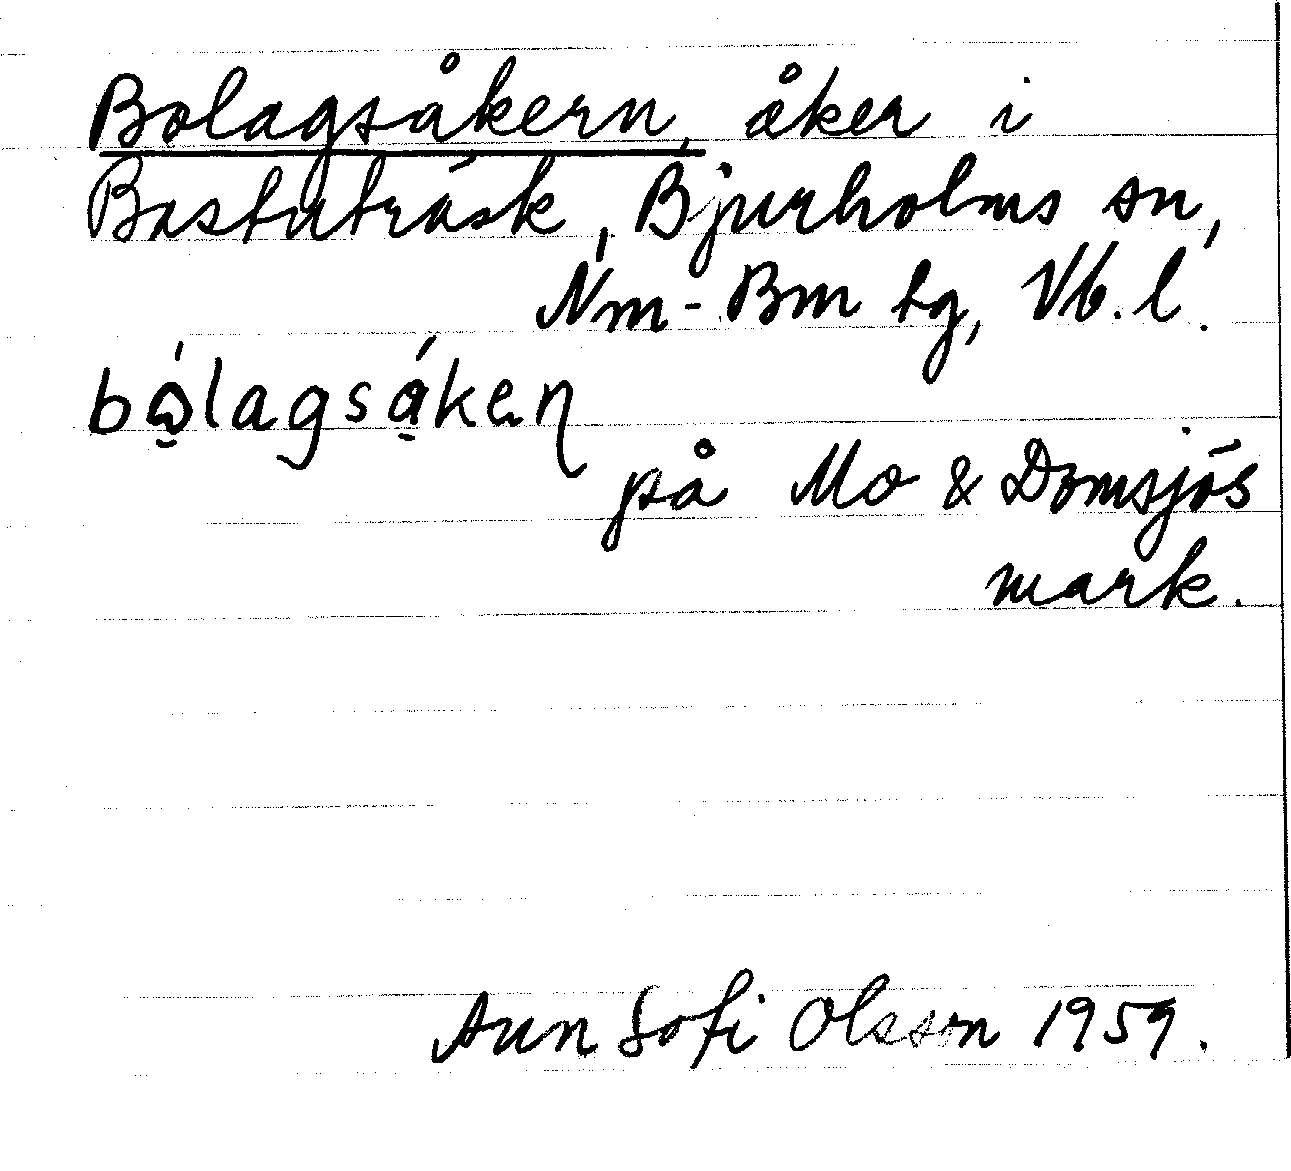 Bolagsåkern, åker i
Bastuträsk, Bjurholms sn,
Nm-Bm tg, Vb. l.
bó̬lagsá̬kɐɳ
på Mo & Domsjös
mark.
Ann Sofi Olsson 1959.